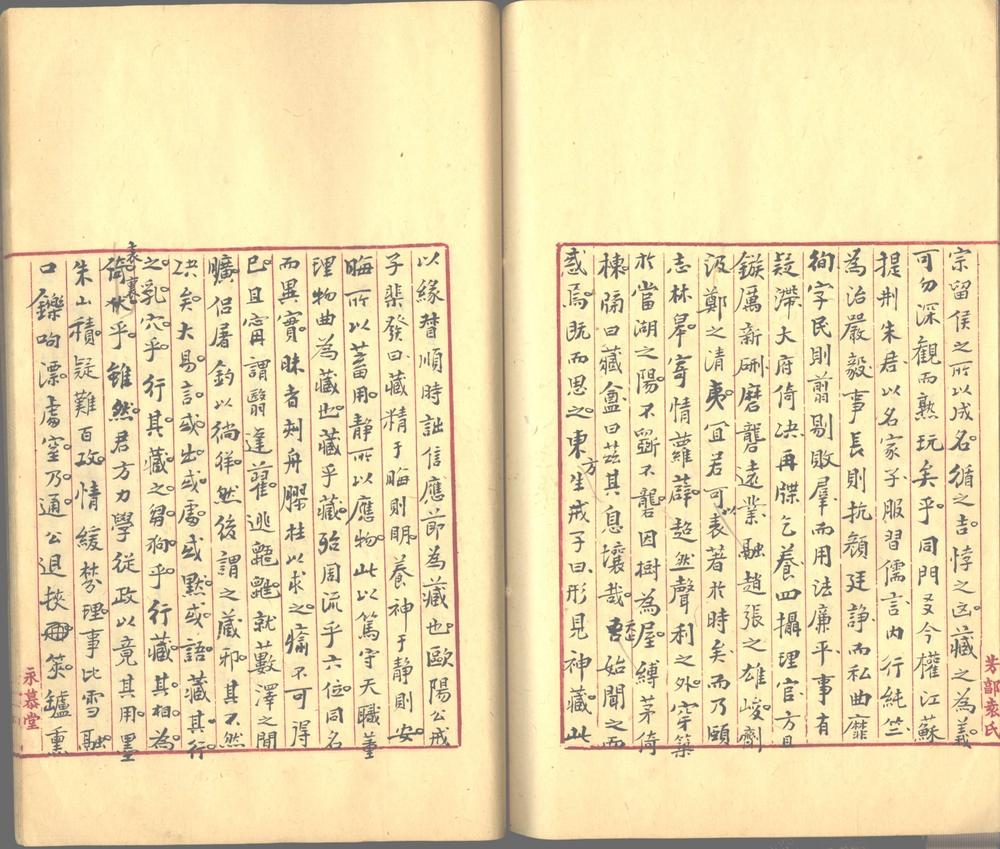 宗留侯之所以成名循之吉悖之凶藏之為義
可勿深觀而熟玩矣乎同門友今權江蘇
提刑朱君以名家子服習儒言內行純竺
為治嚴毅事長則抗顏廷諍而私曲靡
徇字民則翦剔敗羣而用法廉平事有
疑滯大府倚決再牒乞養四攝理官方且
鏃厲新硎磨礱遠業融趙張之雄峻劑
汲鄭之清夷宜若可以表著於時矣而乃頤
志林皋寄情蘿薜超然聲利之外穿築
於當湖之陽不斲不礱因樹為屋縛茅倚
棟隔曰藏盦曰茲其息壤哉吾始聞之而
惑焉既而思之東方生戒子曰形見神藏此
芳郭袁氏
以緣督順時詘信應節為藏也歐陽公戒
子棐發曰藏精于晦則明養神于靜則安
晦所以蓄用靜所以應物此以篤守天職董
理物曲為藏也藏乎藏殆周流乎六位同名
而異實昧者刻舟膠柱以求之庸不可得
已且甯謂翳蓬藋逃鼪鼯就藪澤之閒
曠侶屠釣以徜徉然後謂之藏邪其不然
決矣大易言或出或處或默或語藏其行
之乳穴乎行其藏之芻狗乎行藏其相為
表裏乎雖然君方力學從政以竟其用墨
朱山積疑難百攻情緩棼理事比雪融
口鑠呴漂虛空乃通公退挾筴鑪熏
永慕堂